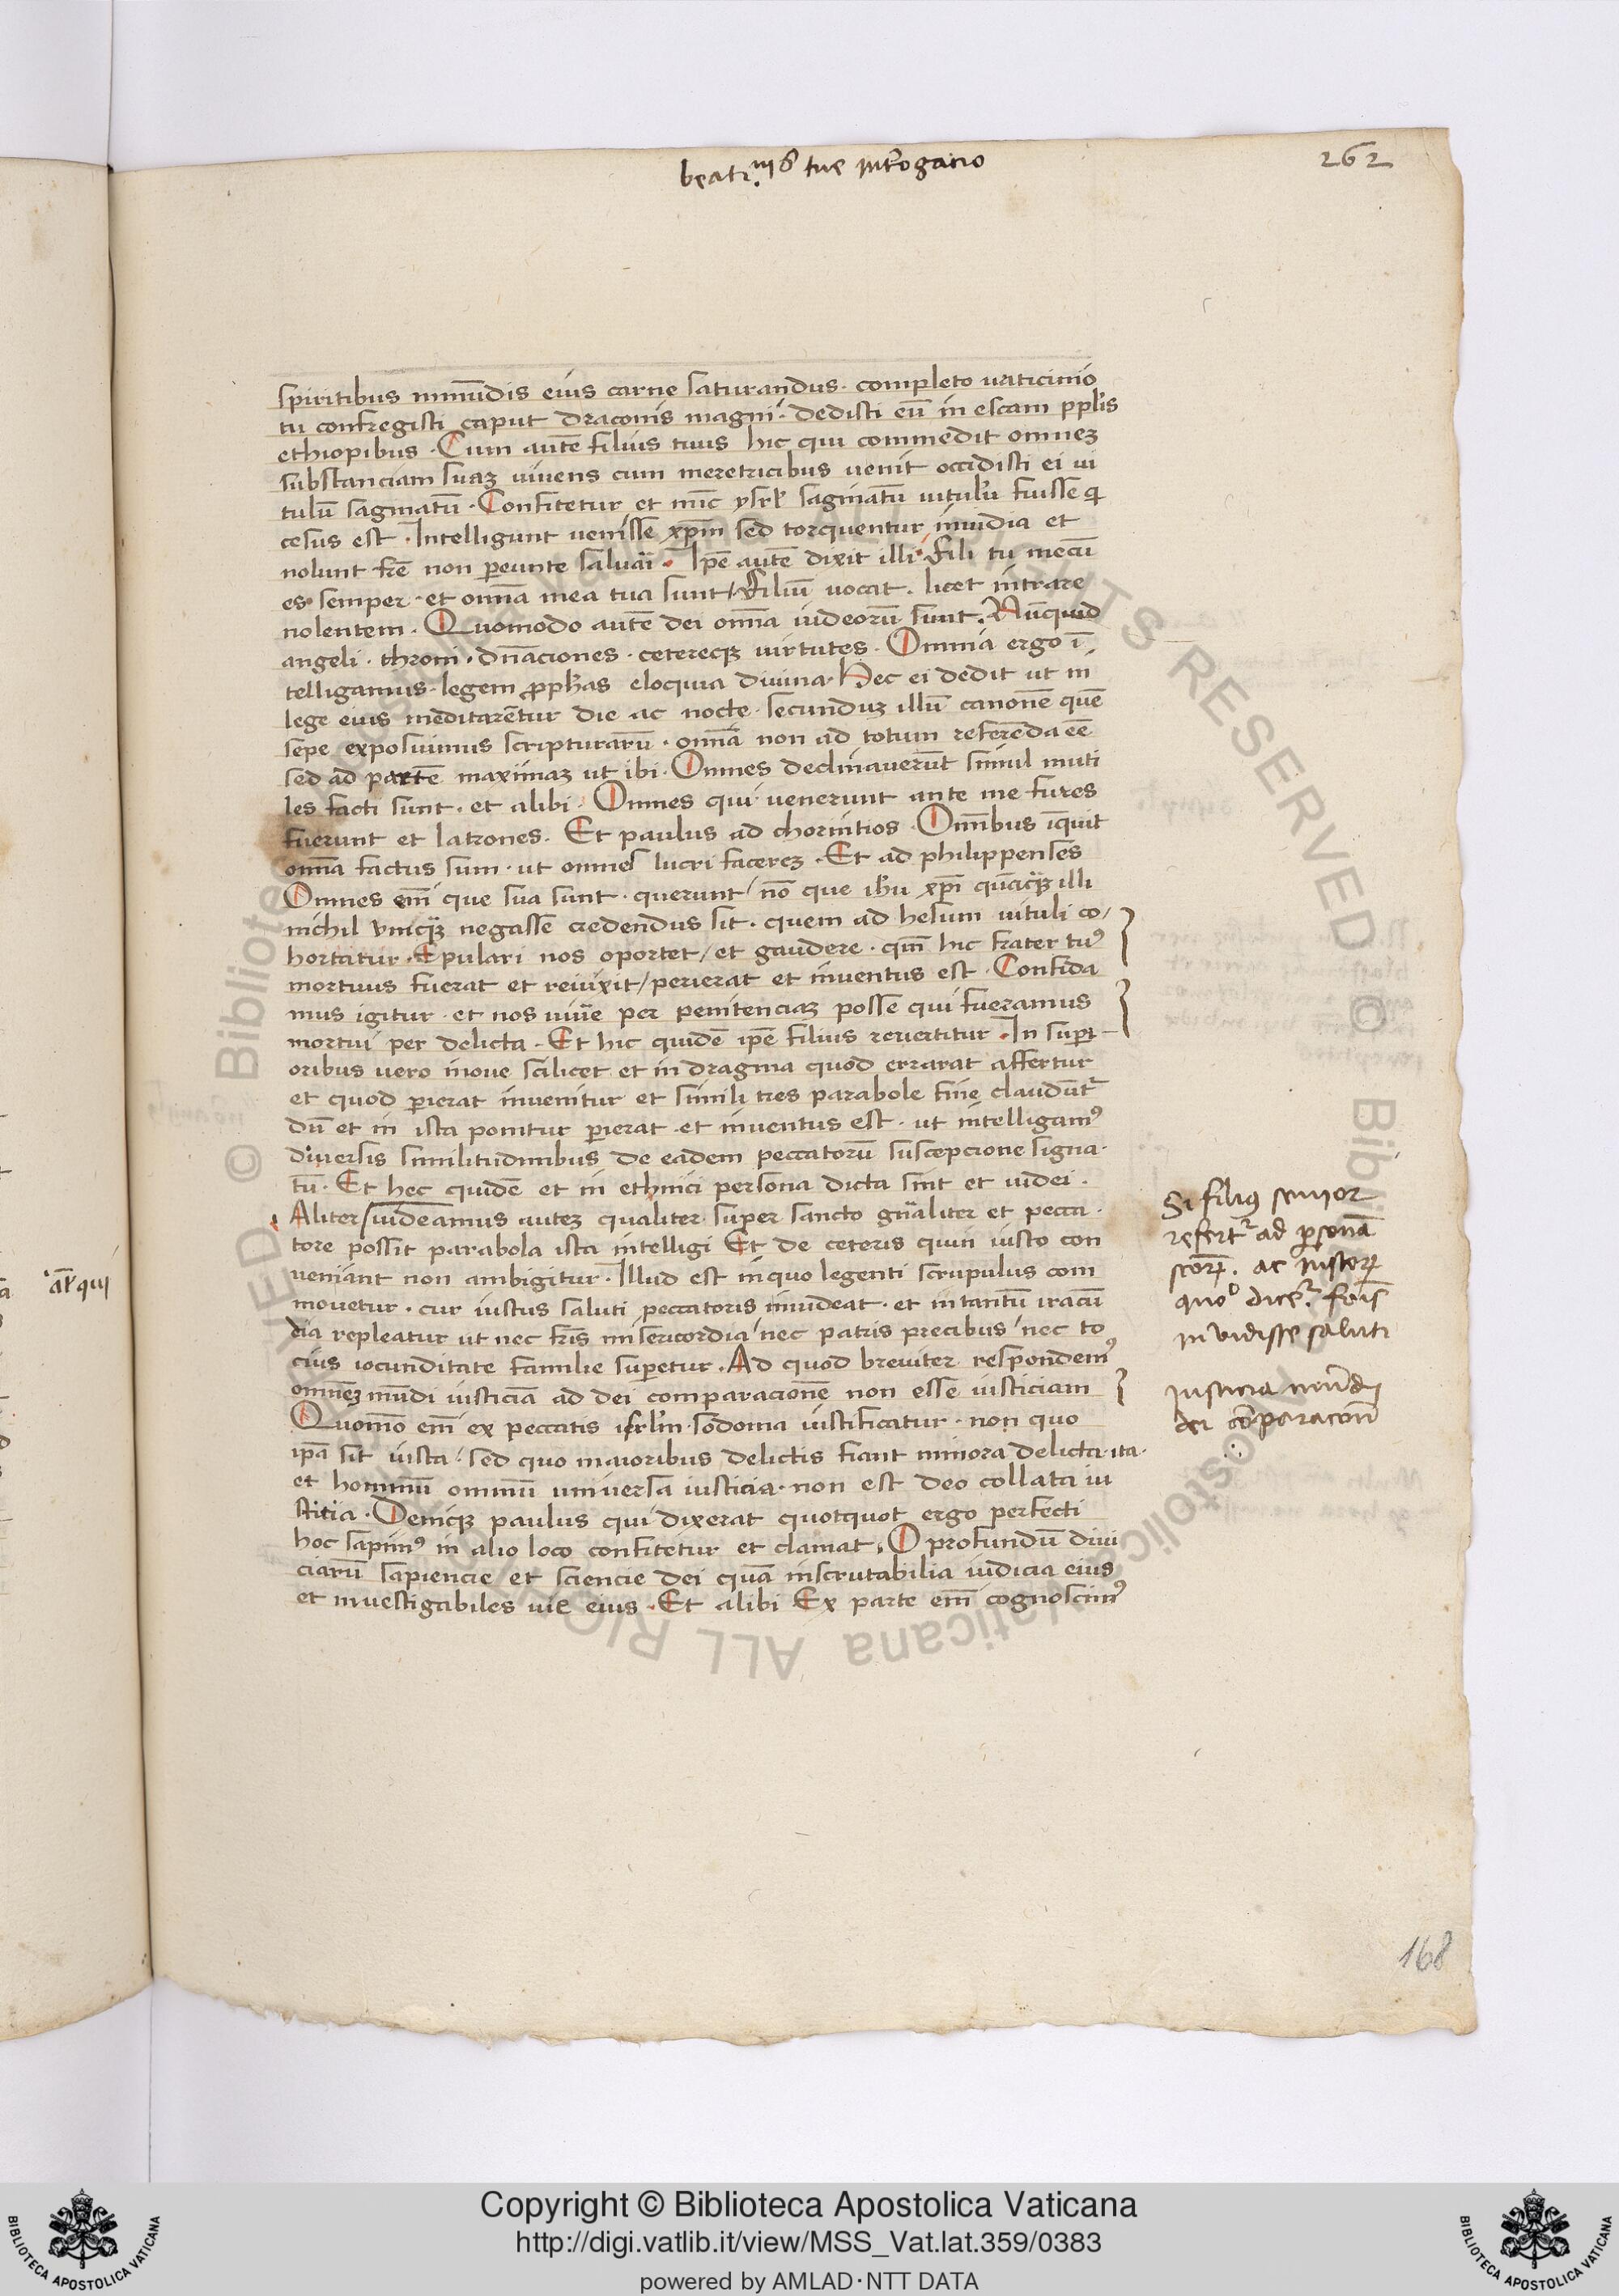 beatr.nis tue intrrogatio
262
spiritibus inmūdis eius carne saturandus · completo vaticinio
tu confregisti caput draconis magni · dedisti eū in escam ppl̄is
ethiopibus · Cum autē filius tuus hic qui commedit omneꝫ
substanciam suaꝫ vivens cum meretricibus venit occidisti ei vi
tulū saginatū · Confitetur et nūc ysrl̄ saginatū vitulū fuisse q
cesus est · Intelligunt venisse xp̄m sed torquentur invidia et
nolunt frē non pereunte salvari · Ipē autē dixit illi · fili tu mecū
es semper · et omīa mea tua sunt / filiū vocat · licet intrare
nolentem · Quomodo autē dei omīa iudeorū sunt · Nūcquid
angeli · throni · dn̄aciones · ceterecqꝫ virtutes · Omnia ergo ī
telligamus · legem ꝓph̄as eloquia divina · Hec ei dedit ut in
lege eius meditarētur die ac nocte · secunduꝫ illū canonē quē
sepe exposuimus scripturarū · omīa non ad totum referēda eē
sed ad partē maximaꝫ ut ibi · Omnes declinaverūt simul inuti
les facti sunt · et alibi · Omnes qui venerunt ante me fures
fuerunt et latrones · Et paulus ad chorintios · Omībus īquit
omīa factus sum · ut omnes lucri facereꝫ · Et ad philippenses
Omnes em̄ que sua sunt · querunt / nō que ih̄u xp̄i quācqꝫ illi
nichil vnicqꝫ negasse credendus sit · quem ad hesum vituli co/
hortatur · Epulari nos oportet / et gaudere · qm̄ hic frater tuꝰ
mortuus fuerat et revixit / perierat et inventus est · Confida
mus igitur · et nos vivē per penitenciaꝫ posse qui fueramus
mortui per delicta · Et hic quidē ipē filius revertitur · In superi
oribus vero in oue scilicet et in dragma quod errarat affertur
et quod perierat invenitur et simili tres parabole fine claudūtr
dū et in ista ponitur perierat · et inventus est · ut intelligamꝰ
diversis similitudinibus de eadem peccatorū suscepcione signa·
tū · Et hec quidē et in ethnici persona dicta sint et iudei ·
Aliter / videamus auteꝫ qualiter super sancto gn̄aliter et pecca·
tore possit parabola ista intelligi Et de ceteris quin iusto con
veniant non ambigitur · Illud est in quo legenti scrupulus com
movetur · cur iustus saluti peccatoris invideat · et in tantū iracū
dia repleatur ut nec fr̄is misericordia / nec patris precibus / nec to
cius iocunditate familie superetur · Ad quod breviter respondemꝰ
omneꝫ mūdi iusticiā ad dei comparacionē non esse iusticiam
Quomō em̄ ex peccatis isrl̄m sodoma iustificatur · non quo
ipā sit iusta / sed quo maioribus delictis fiant minora delicta · ita·
et hominū omniū universa iusticia · non est deo collata iu
sticia · Denicqꝫ paulus qui dixerat quotquot ergo perfecti
hoc sapimꝰ in alio loco confitetur et clamat · O profundū divi
ciarū sapiencie et sciencie dei quā inscrutabilia iudicia eius
et investigabiles vie eius · Et alibi Ex parte em̄ cognoscimꝰ
Si filiꝰ senior
refertr ad psonā
scōrꝫ. ac iustorꝫ
quo dicetr fr̄is
invidisse saluti
iusticia mūdi
dei cōparacōne
168
Copyright © Biblioteca Apostolica Vaticana
http://digi.vatlib.it/view/MSS_Vat.lat.359/0383
powered by AMLAD·NTT DATA